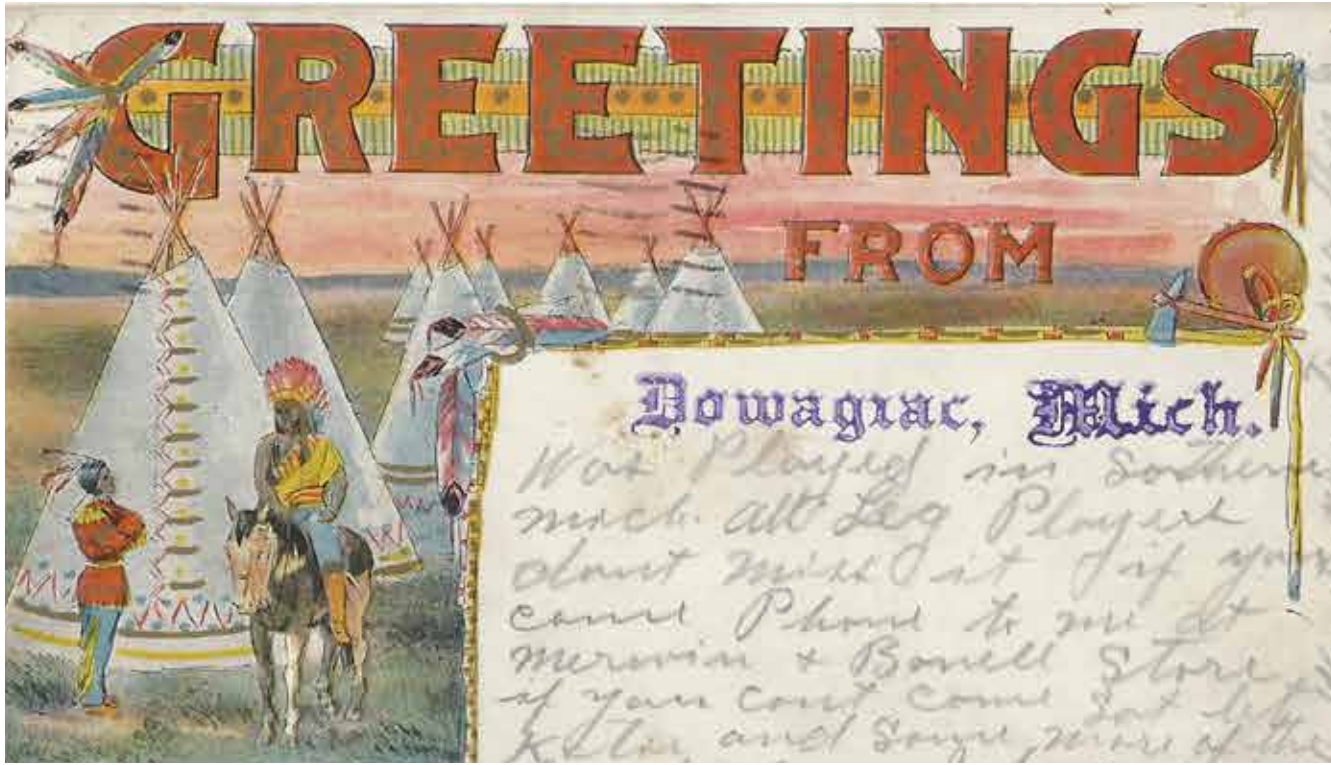 GREETINGS
FROM
Dowagiac, Mich.
Was Played in Southern
mich. all Leg Players
dont miss it if you
come Phone to me at
Merwin & Bonell Store
if you cant come Sat let
and some more of the